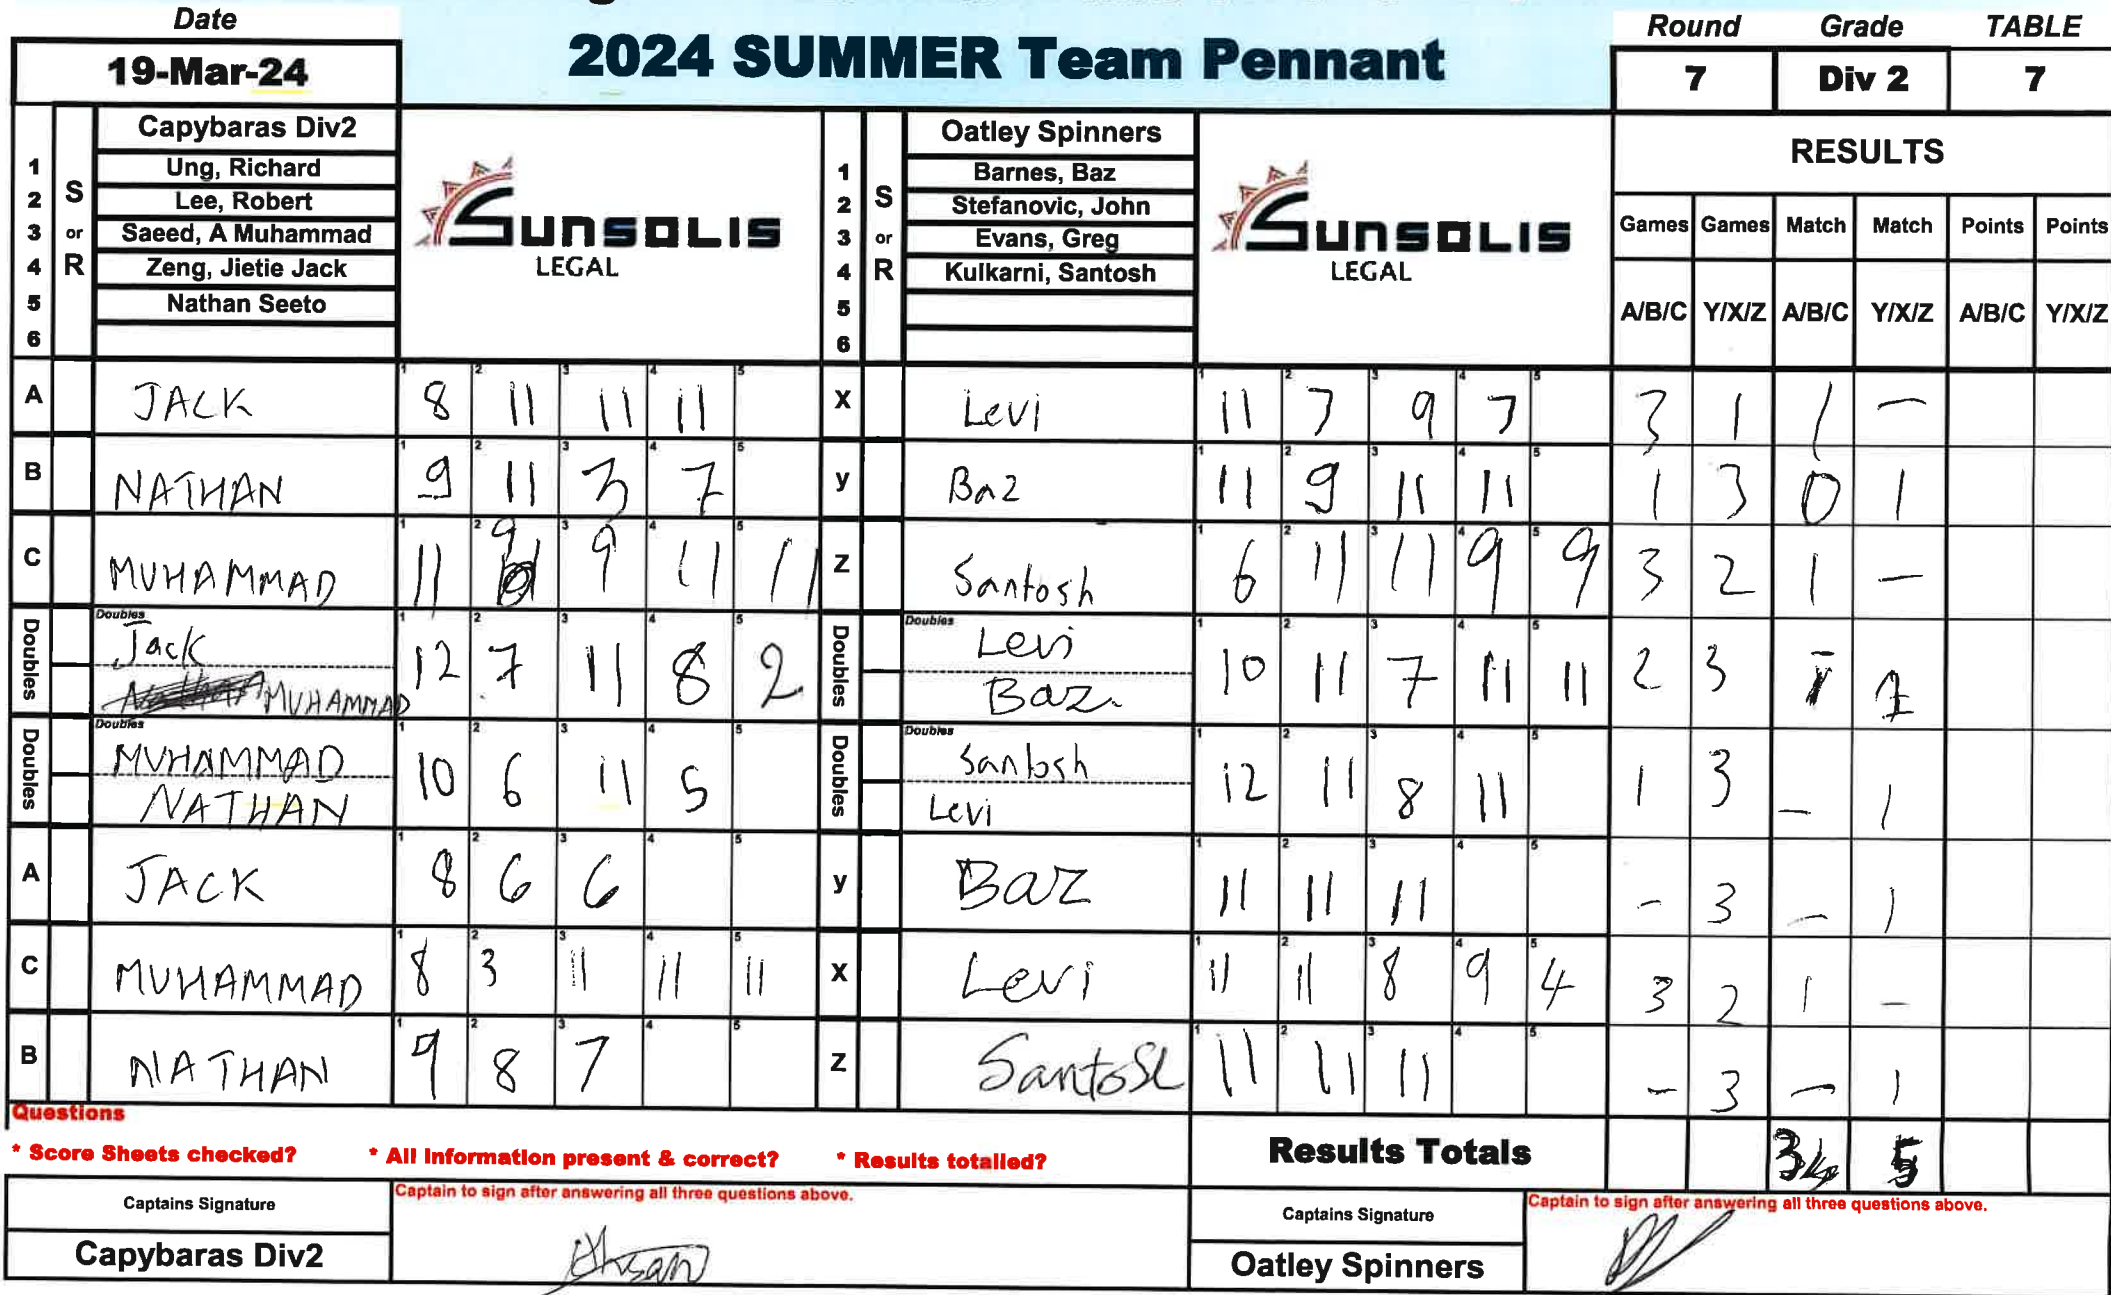 Date
19-Mar-24
2024 SUMMER Team Pennant
Round Grade TABLE
7 Div 2 7
S or R
Capybaras Div2
1 Ung, Richard
2 Lee, Robert
3 Saeed, A Muhammad
4 Zeng, Jietie Jack
5 Nathan Seeto
6
SUNSOLIS
LEGAL
S or R
Oatley Spinners
1 Barnes, Baz
2 Stefanovic, John
3 Evans, Greg
4 Kulkarni, Santosh
5
6
SUNSOLIS
LEGAL
RESULTS
Games Games Match Match Points Points
A/B/C Y/X/Z A/B/C Y/X/Z A/B/C Y/X/Z
A JACK 8 11 11 11 X Levi 11 7 9 7 3 1 1 -
B NATHAN 9 11 3 7 y Baz 11 9 11 11 1 3 0 1
C MUHAMMAD 11 9 9 11 11 Z Santosh 6 11 11 9 9 3 2 1 -
Doubles Jack MUHAMMAD 12 7 11 8 2 Doubles Levi Baz 10 11 7 11 11 2 3 - 1
Doubles MUHAMMAD NATHAN 10 6 11 5 Doubles Santosh Levi 12 11 8 11 1 3 - 1
A JACK 8 6 6 y Baz 11 11 11 - 3 - 1
C MUHAMMAD 8 3 11 11 11 X Levi 11 11 8 9 4 3 2 1 -
B NATHAN 9 8 7 Z Santosh 11 11 11 - 3 - 1
Questions
* Score Sheets checked? * All Information present & correct? * Results totalled?
Results Totals 3 5
Captains Signature
Captain to sign after answering all three questions above.
Capybaras Div2
Captains Signature
Captain to sign after answering all three questions above.
Oatley Spinners